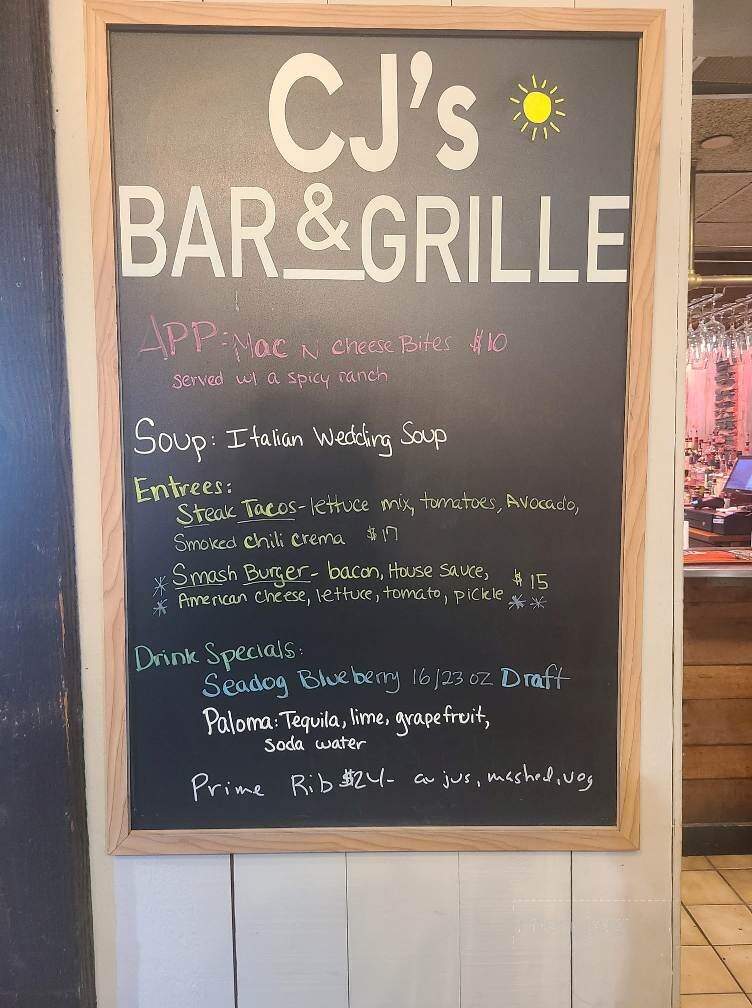 CJ's
BAR & GRILLE
APP: Mac N cheese Bites $10
served w/ a spicy ranch
Soup: Italian Wedding Soup
Entrees:
Steak Tacos - lettuce mix, tomatoes, Avocado,
Smoked chili crema $17
* Smash Burger - bacon, House Sauce, $15
* American cheese, lettuce, tomato, pickle * *
Drink Specials:
Seadog Blueberry 16/23 oz Draft
Paloma: Tequila, lime, grapefruit,
soda water
Prime Rib $24 - au jus, mashed, veg